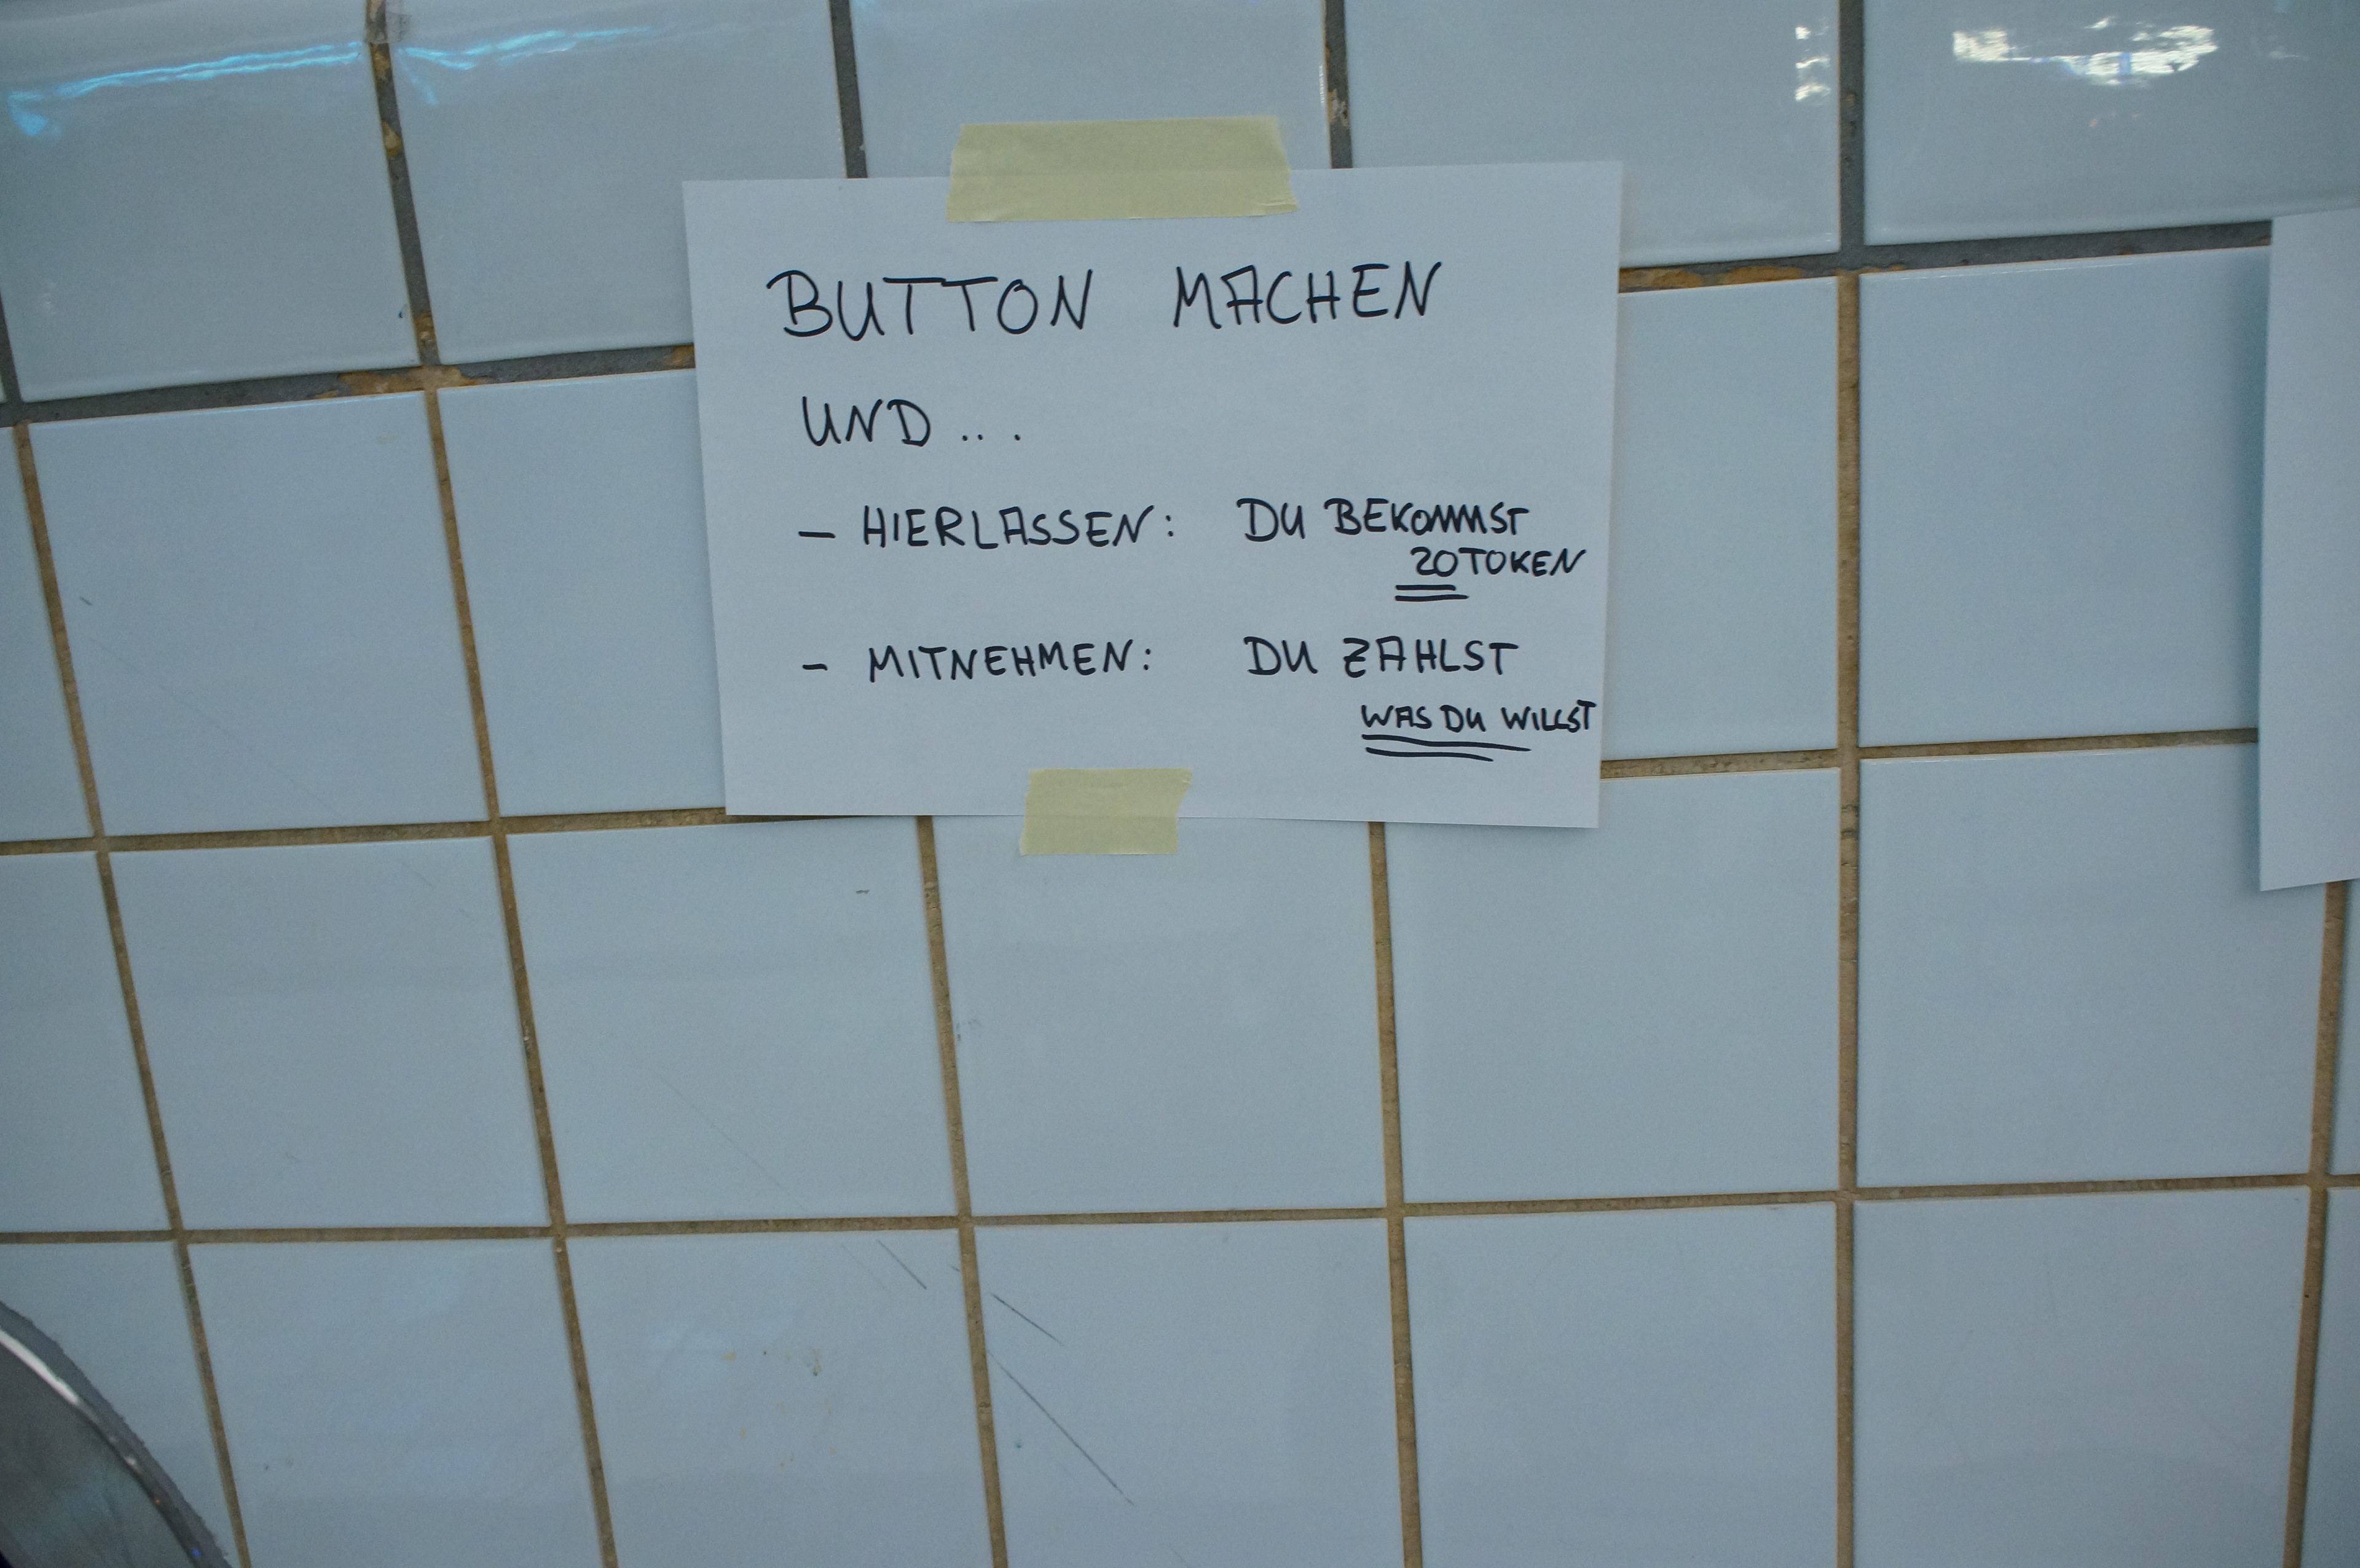 BUTTON MACHEN
UND...
- HIERLASSEN: DU BEKOMMST
20 TOKEN
- MITNEHMEN: DU ZAHLST
WAS DU WILLST